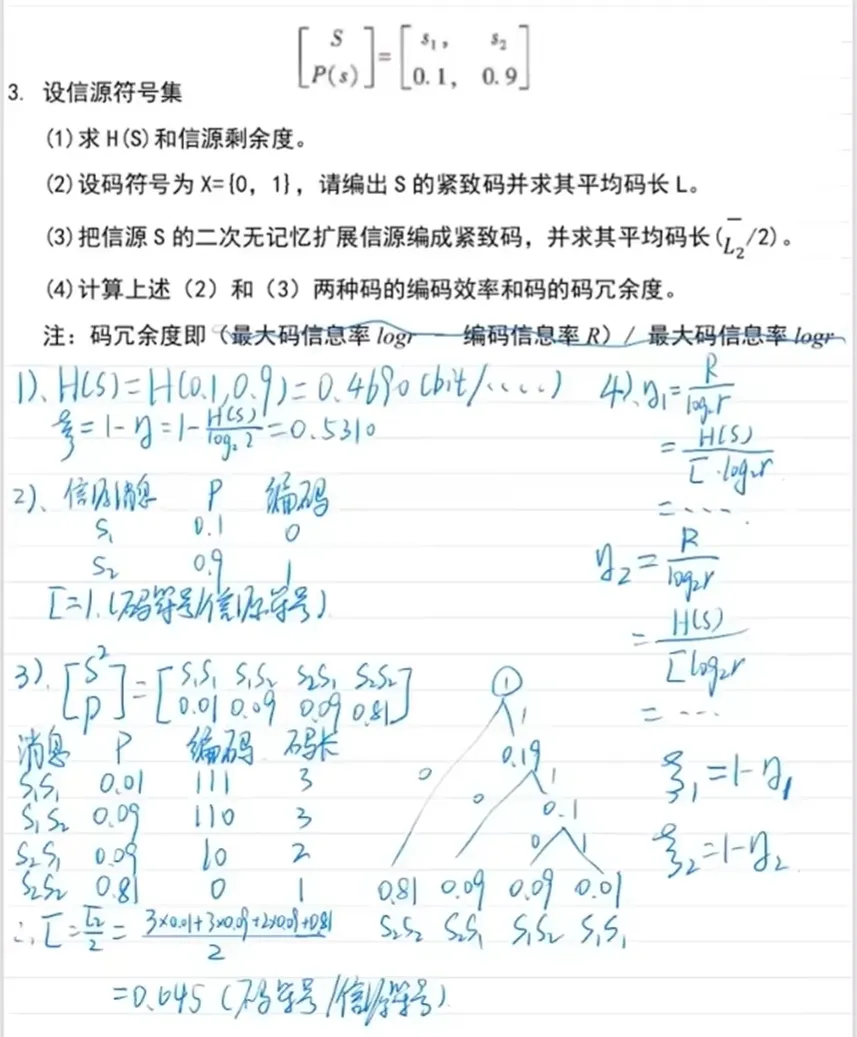 [S P(s)] = [s₁, s₂ 0.1, 0.9]
3. 设信源符号集
(1)求H(S)和信源剩余度。
(2)设码符号为X={0，1}，请编出S的紧致码并求其平均码长L。
(3)把信源S的二次无记忆扩展信源编成紧致码，并求其平均码长(L̄₂/2)。
(4)计算上述（2）和（3）两种码的编码效率和码的码冗余度。
注：码冗余度即（最大码信息率logr — 编码信息率R）/ 最大码信息率logr
1)、H(S)=H(0.1,0.9)=0.4690(bit/、、、、)
ξ=1-η=1-H(S)/log₂2=0.5310
2)、信源消息 P 编码
S₁ 0.1 0
S₂ 0.9 1
L̄=1.(码符号/信源符号)
3)、[S² P]=[S₁S₁ S₁S₂ S₂S₁ S₂S₂ 0.01 0.09 0.09 0.81]
消息 P 编码 码长
S₁S₁ 0.01 111 3
S₁S₂ 0.09 110 3
S₂S₁ 0.09 10 2
S₂S₂ 0.81 0 1
∴L̄=L̄₂/2=(3×0.01+3×0.09+2×0.09+0.81)/2
=0.645(码符号/信源符号)
1
0 1
0.19
0 1
0.1
0 1
0.81 0.09 0.09 0.01
S₂S₂ S₂S₁ S₁S₂ S₁S₁
4)、η₁=R/log₂r
=H(S)/(L̄·log₂r)
=、、、、
η₂=R/log₂r
=H(S)/(L̄log₂r)
=、、、
ξ₁=1-η₁
ξ₂=1-η₂